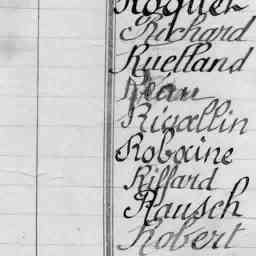 Roquet
Richard
Ruelland
Réau
Rivallin
Robaine
Riffard
Rausch
Robert